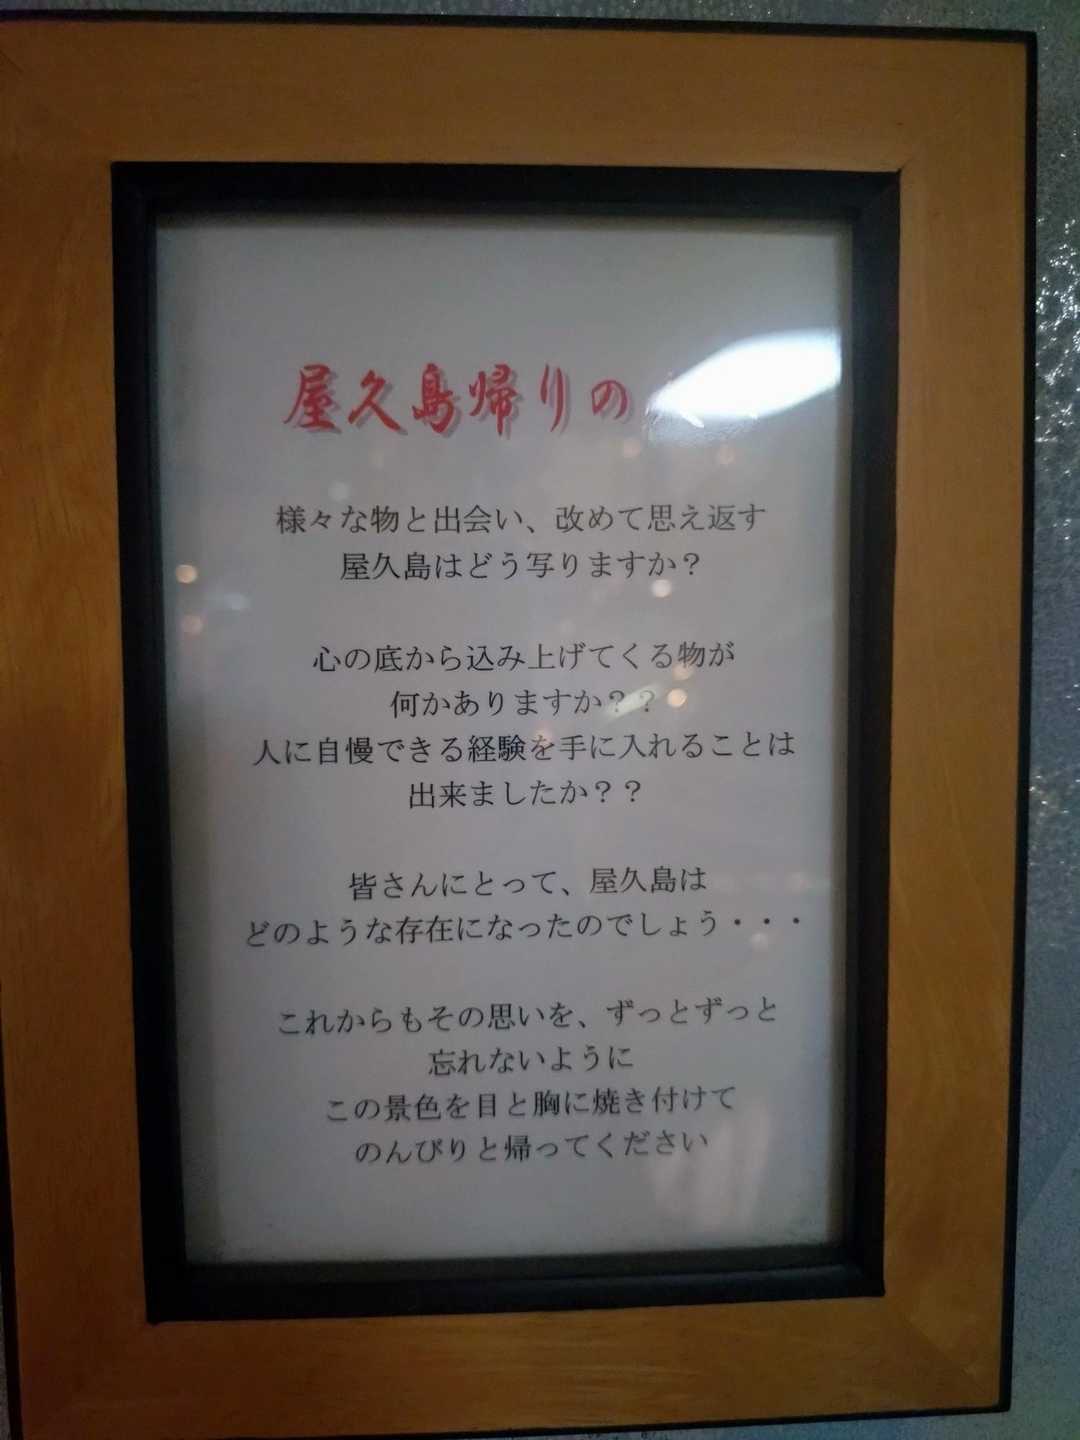 屋久島帰りの
様々な物と出会い、改めて思え返す
屋久島はどう写りますか？
心の底から込み上げてくる物が
何かありますか？？
人に自慢できる経験を手に入れることは
出来ましたか？？
皆さんにとって、屋久島は
どのような存在になったのでしょう・・・
これからもその思いを、ずっとずっと
忘れないように
この景色を目と胸に焼き付けて
のんびりと帰ってください